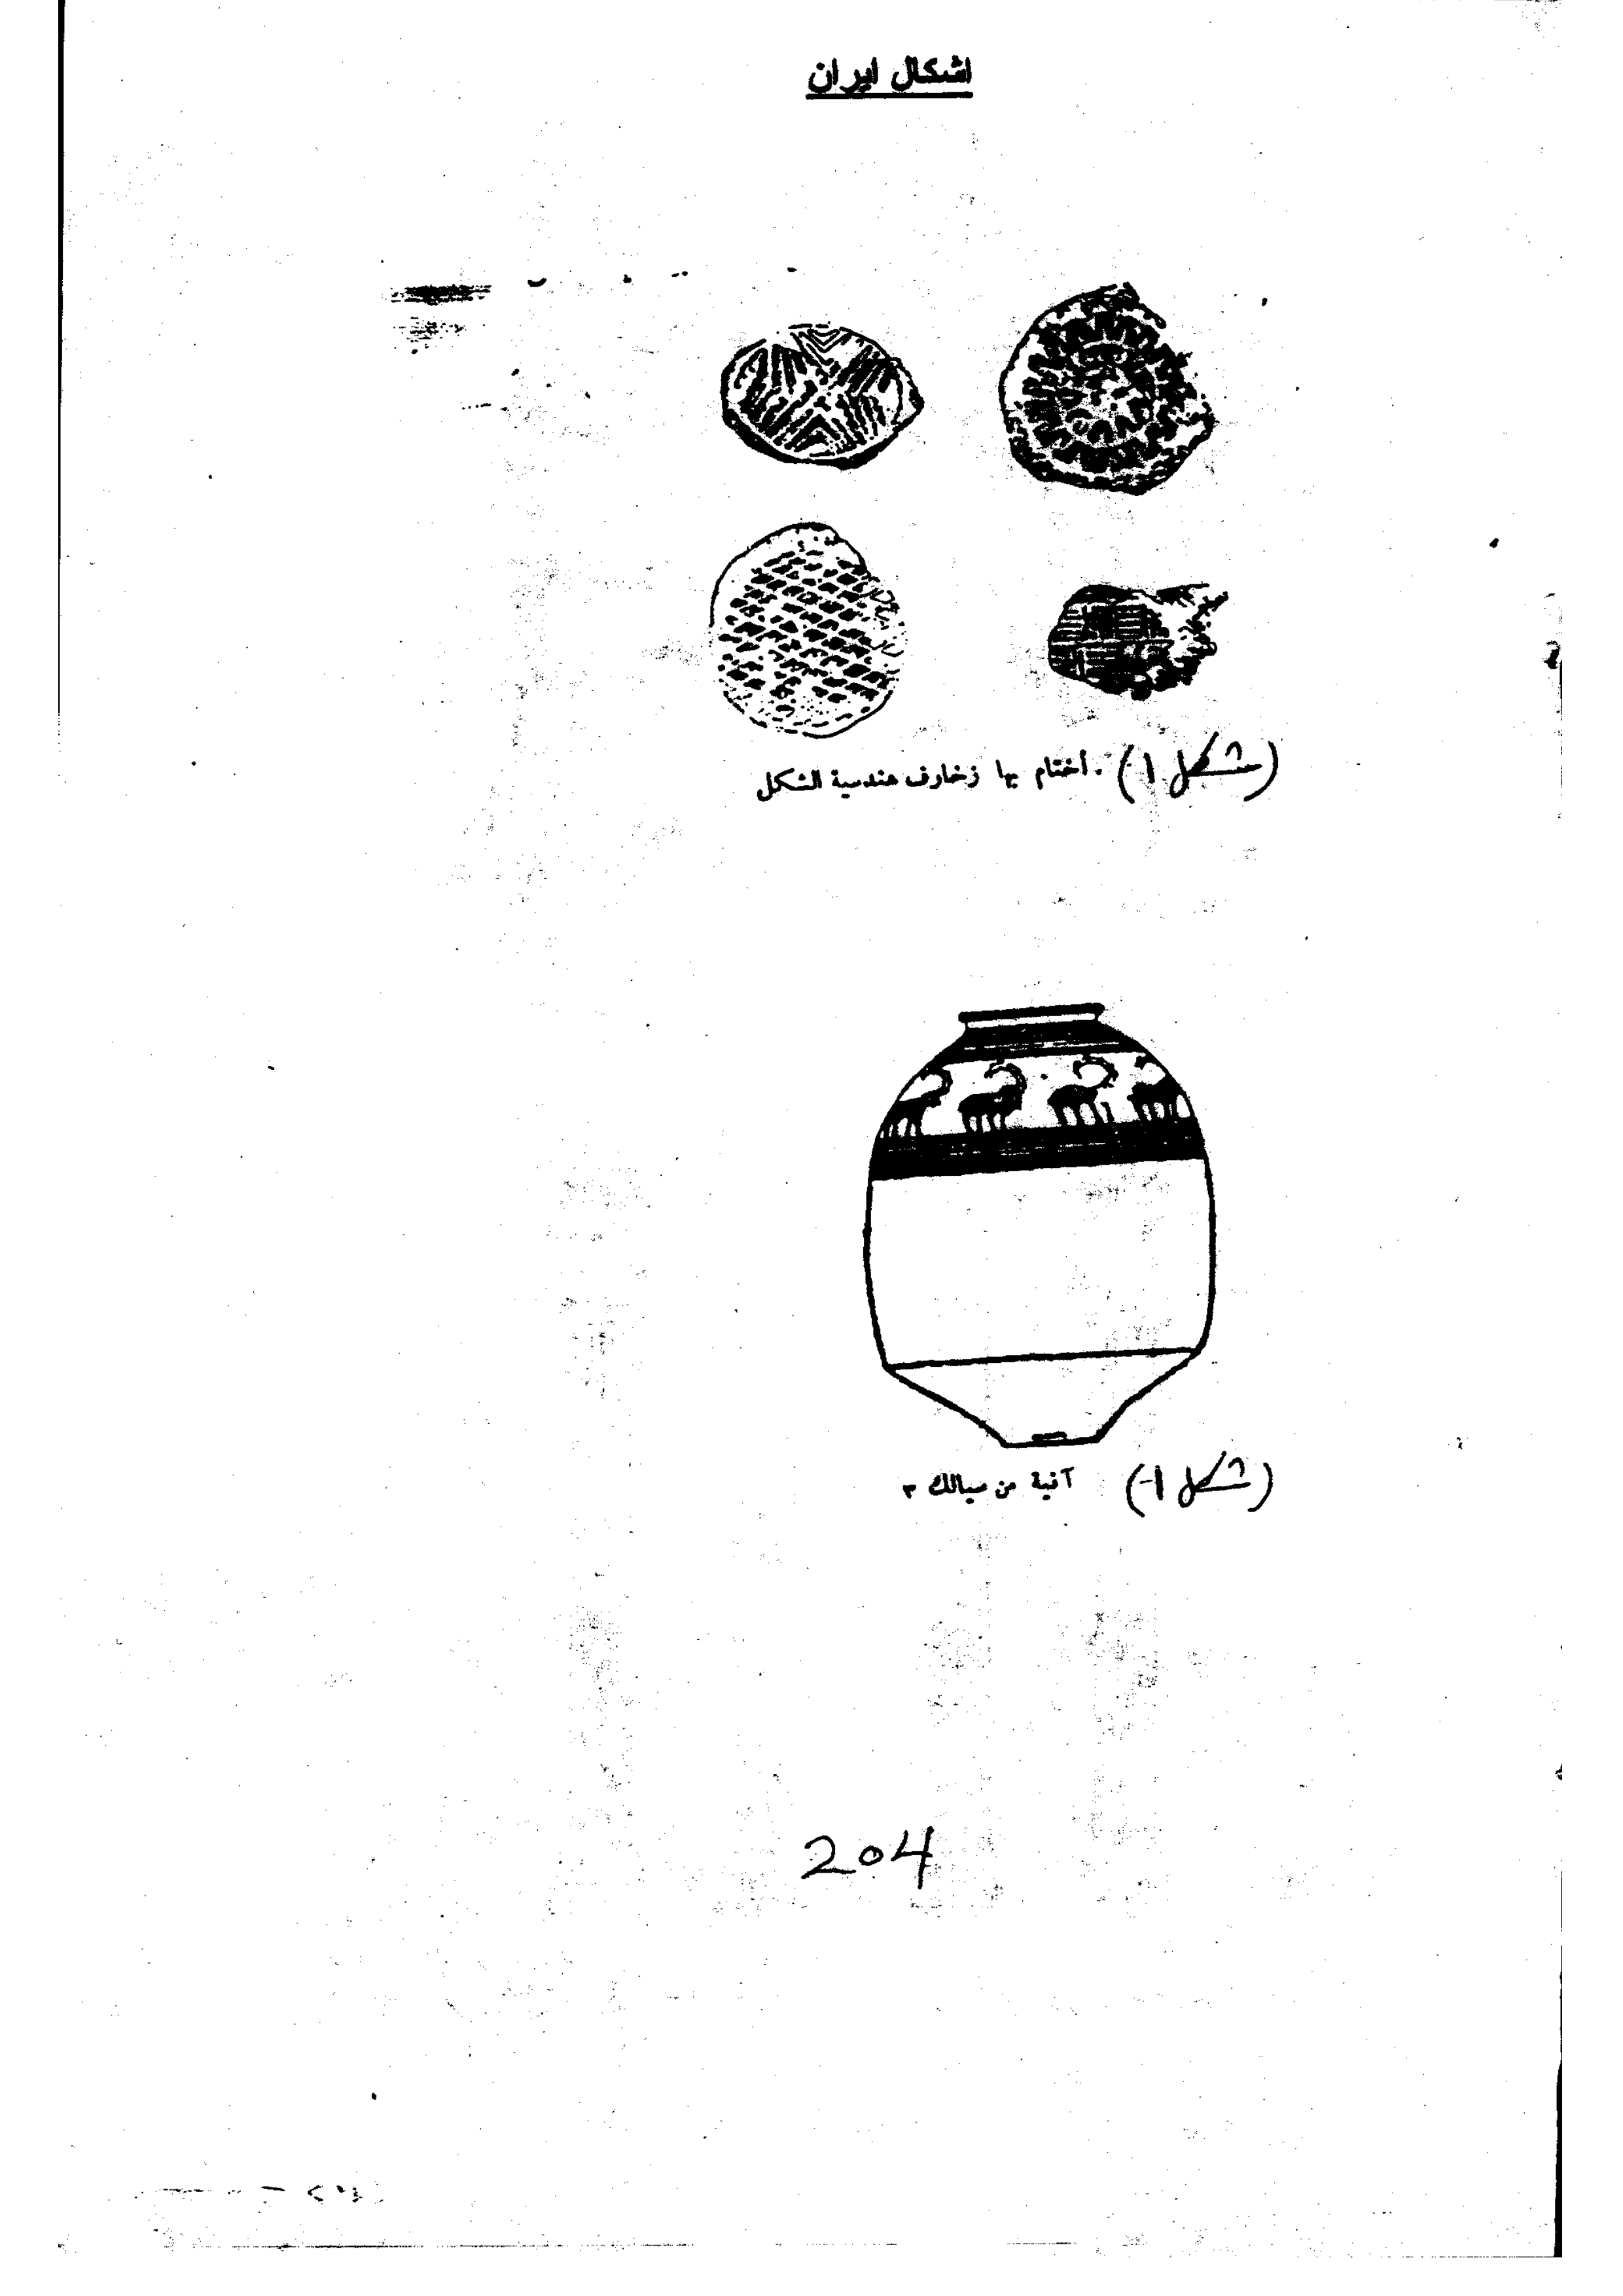 اشكال ايران
(شكل ١) . أختام بها زخارف هندسية الشكل
(شكل ١-) آنية من سيالك ٣
204